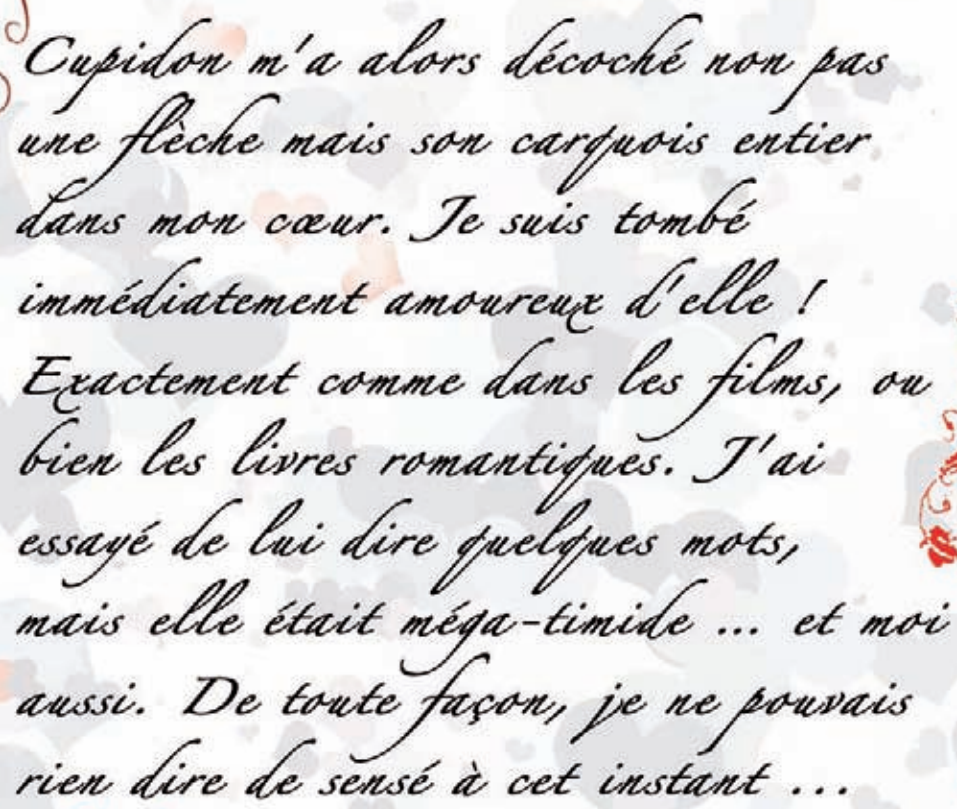 Cupidon m'a alors décoché non pas
une flèche mais son carquois entier
dans mon cœur. Je suis tombé
immédiatement amoureux d'elle !
Exactement comme dans les films, ou
bien les livres romantiques. J'ai
essayé de lui dire quelques mots,
mais elle était méga-timide ... et moi
aussi. De toute façon, je ne pouvais
rien dire de sensé à cet instant ...